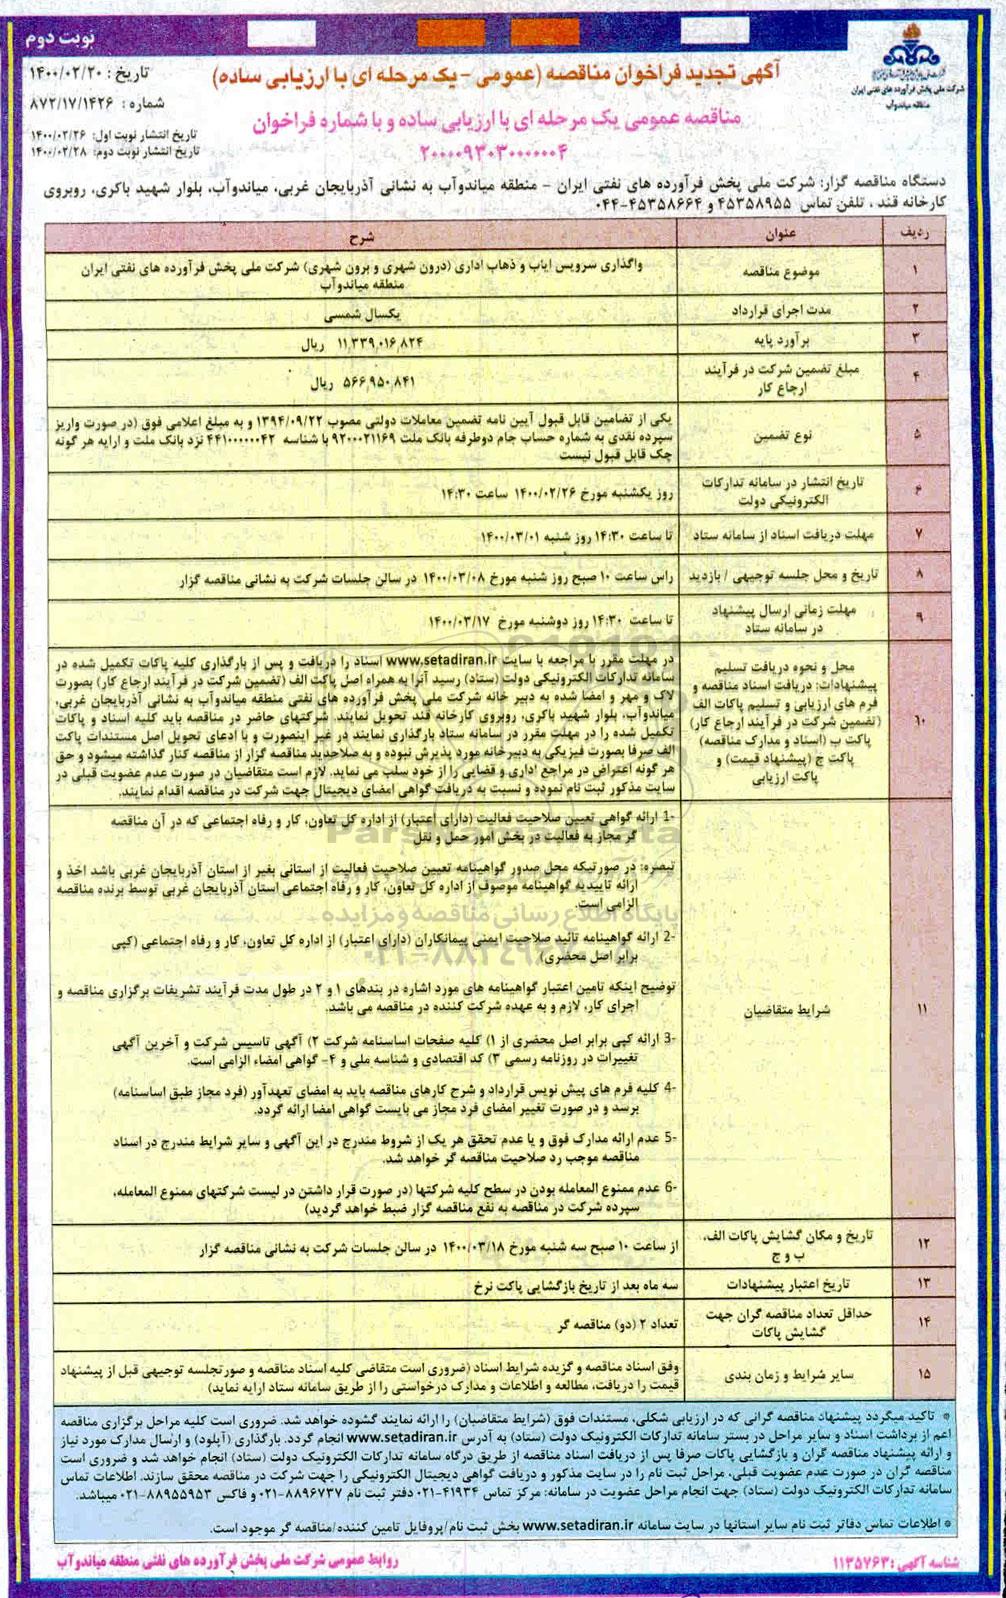 نوبت دوم
شرکت ملی پخش فرآورده های نفتی ایران
منطقه میاندوآب
آگهی تجدید فراخوان مناقصه (عمومی - یک مرحله ای با ارزیابی ساده)
تاریخ : ۱۴۰۰/۰۲/۲۰
شماره : ۸۷۲/۱۷/۱۴۲۶
مناقصه عمومی یک مرحله ای با ارزیابی ساده و با شماره فراخوان
۲۰۰۰۰۹۳۰۳۰۰۰۰۰۰۴
تاریخ انتشار نوبت اول: ۱۴۰۰/۰۲/۲۶
تاریخ انتشار نوبت دوم: ۱۴۰۰/۰۲/۲۸
دستگاه مناقصه گزار: شرکت ملی پخش فرآورده های نفتی ایران - منطقه میاندوآب به نشانی آذربایجان غربی، میاندوآب، بلوار شهید باکری، روبروی
کارخانه قند ، تلفن تماس ۴۵۳۵۸۹۵۵ و ۴۵۳۵۸۶۶۴-۰۴۴
ردیف عنوان شرح
۱ موضوع مناقصه واگذاری سرویس ایاب و ذهاب اداری (درون شهری و برون شهری) شرکت ملی پخش فرآورده های نفتی ایران
منطقه میاندوآب
۲ مدت اجرای قرارداد یکسال شمسی
۳ برآورد پایه ۱۱,۳۳۹,۰۱۶,۸۲۴ ریال
۴ مبلغ تضمین شرکت در فرآیند
ارجاع کار
۵۶۶,۹۵۰,۸۴۱ ریال
۵ نوع تضمین
یکی از تضامین قابل قبول آیین نامه تضمین معاملات دولتی مصوب ۱۳۹۴/۰۹/۲۲ و به مبلغ اعلامی فوق (در صورت واریز
سپرده نقدی به شماره حساب جام دوطرفه بانک ملت ۹۲۰۰۰۲۱۱۶۹ با شناسه ۴۴۱۰۰۰۰۰۰۴۲ نزد بانک ملت و ارایه هر گونه
چک قابل قبول نیست
۶ تاریخ انتشار در سامانه تدارکات
الکترونیکی دولت
روز یکشنبه مورخ ۱۴۰۰/۰۲/۲۶ ساعت ۱۴:۳۰
۷ مهلت دریافت اسناد از سامانه ستاد تا ساعت ۱۴:۳۰ روز شنبه ۱۴۰۰/۰۳/۰۱
۸ تاریخ و محل جلسه توجیهی / بازدید راس ساعت ۱۰ صبح روز شنبه مورخ ۱۴۰۰/۰۳/۰۸ در سالن جلسات شرکت به نشانی مناقصه گزار
۹ مهلت زمانی ارسال پیشنهاد
در سامانه ستاد
تا ساعت ۱۴:۳۰ روز دوشنبه مورخ ۱۴۰۰/۰۳/۱۷
۱۰ محل و نحوه دریافت تسلیم
پیشنهادات: دریافت اسناد مناقصه و
فرم های ارزیابی و تسلیم پاکات الف
(تضمین شرکت در فرآیند ارجاع کار)
پاکت ب (اسناد و مدارک مناقصه)
پاکت ج (پیشنهاد قیمت) و
پاکت ارزیابی
در مهلت مقرر با مراجعه با سایت www.setadiran.ir اسناد را دریافت و پس از بارگذاری کلیه پاکات تکمیل شده در
سامانه تدارکات الکترونیکی دولت (ستاد) رسید آنرا به همراه اصل پاکت الف (تضمین شرکت در فرآیند ارجاع کار) بصورت
لاک و مهر و امضا شده به دبیر خانه شرکت ملی پخش فرآورده های نفتی منطقه میاندوآب به نشانی آذربایجان غربی،
میاندوآب، بلوار شهید باکری، روبروی کارخانه قند تحویل نمایند. شرکتهای حاضر در مناقصه باید کلیه اسناد و پاکات
تکمیل شده را در مهلت مقرر در سامانه ستاد بارگذاری نمایند در غیر اینصورت و با ادعای تحویل اصل مستندات پاکت
الف صرفا بصورت فیزیکی به دبیرخانه مورد پذیرش نبوده و به صلاحدید مناقصه گزار از مناقصه کنار گذاشته میشود و حق
هر گونه اعتراض در مراجع اداری و قضایی را از خود سلب می نماید. لازم است متقاضیان در صورت عدم عضویت قبلی در
سایت مذکور ثبت نام نموده و نسبت به دریافت گواهی امضای دیجیتال جهت شرکت در مناقصه اقدام نمایند.
۱۱ شرایط متقاضیان
1- ارائه گواهی تعیین صلاحیت فعالیت (دارای اعتبار) از اداره کل تعاون، کار و رفاه اجتماعی که در آن مناقصه
گر مجاز به فعالیت در بخش امور حمل و نقل
تبصره: در صورتیکه محل صدور گواهینامه تعیین صلاحیت فعالیت از استانی بغیر از استان آذربایجان غربی باشد اخذ و
ارائه تاییدیه گواهینامه موصوف از اداره کل تعاون، کار و رفاه اجتماعی استان آذربایجان غربی توسط برنده مناقصه
الزامی است.
2- ارائه گواهینامه تائید صلاحیت ایمنی پیمانکاران (دارای اعتبار) از اداره کل تعاون، کار و رفاه اجتماعی (کپی
برابر اصل محضری)
توضیح اینکه تامین اعتبار گواهینامه های مورد اشاره در بندهای ۱ و ۲ در طول مدت فرآیند تشریفات برگزاری مناقصه و
اجرای کار، لازم و به عهده شرکت کننده در مناقصه می باشد.
3- ارائه کپی برابر اصل محضری از ۱) کلیه صفحات اساسنامه شرکت ۲) آگهی تاسیس شرکت و آخرین آگهی
تغییرات در روزنامه رسمی ۳) کد اقتصادی و شناسه ملی و ۴- گواهی امضاء الزامی است.
4- کلیه فرم های پیش نویس قرارداد و شرح کارهای مناقصه باید به امضای تعهدآور (فرد مجاز طبق اساسنامه)
برسد و در صورت تغییر امضای فرد مجاز می بایست گواهی امضا ارائه گردد.
5- عدم ارائه مدارک فوق و یا عدم تحقق هر یک از شروط مندرج در این آگهی و سایر شرایط مندرج در اسناد
مناقصه موجب رد صلاحیت مناقصه گر خواهد شد.
6- عدم ممنوع المعامله بودن در سطح کلیه شرکتها (در صورت قرار داشتن در لیست شرکتهای ممنوع المعامله،
سپرده شرکت در مناقصه به نفع مناقصه گزار ضبط خواهد گردید)
۱۲ تاریخ و مکان گشایش پاکات الف،
ب و ج
از ساعت ۱۰ صبح سه شنبه مورخ ۱۴۰۰/۰۳/۱۸ در سالن جلسات شرکت به نشانی مناقصه گزار
۱۳ تاریخ اعتبار پیشنهادات سه ماه بعد از تاریخ بازگشایی پاکت نرخ
۱۴ حداقل تعداد مناقصه گران جهت
گشایش پاکات
تعداد ۲ (دو) مناقصه گر
۱۵ سایر شرایط و زمان بندی
وفق اسناد مناقصه و گزیده شرایط اسناد (ضروری است متقاضی کلیه اسناد مناقصه و صورتجلسه توجیهی قبل از پیشنهاد
قیمت را دریافت، مطالعه و اطلاعات و مدارک درخواستی را از طریق سامانه ستاد ارایه نماید)
* تاکید میگردد پیشنهاد مناقصه گرانی که در ارزیابی شکلی، مستندات فوق (شرایط متقاضیان) را ارائه نمایند گشوده خواهد شد. ضروری است کلیه مراحل برگزاری مناقصه
اعم از برداشت اسناد و سایر مراحل در بستر سامانه تدارکات الکترونیک دولت (ستاد) به آدرس www.setadiran.ir انجام گردد. بارگذاری (آپلود) و ارسال مدارک مورد نیاز
و ارائه پیشنهاد مناقصه گران و بازگشایی پاکات صرفا پس از دریافت اسناد مناقصه از طریق درگاه سامانه تدارکات الکترونیک دولت (ستاد) انجام خواهد شد و ضروری است
مناقصه گران در صورت عدم عضویت قبلی، مراحل ثبت نام را در سایت مذکور و دریافت گواهی دیجیتال الکترونیکی را جهت شرکت در مناقصه محقق سازند. اطلاعات تماس
سامانه تدارکات الکترونیک دولت (ستاد) جهت انجام مراحل عضویت در سامانه: مرکز تماس ۴۱۹۳۴-۰۲۱ دفتر ثبت نام ۸۸۹۶۷۳۷-۰۲۱ و فاکس ۸۸۹۵۵۹۵۳-۰۲۱ میباشد.
* اطلاعات تماس دفاتر ثبت نام سایر استانها در سایت سامانه www.setadiran.ir بخش ثبت نام/پروفایل تامین کننده/مناقصه گر موجود است.
شناسه آگهی : ۱۱۳۵۷۶۳
روابط عمومی شرکت ملی پخش فرآورده های نفتی منطقه میاندوآب
پایگاه اطلاع رسانی مناقصه و مزایده